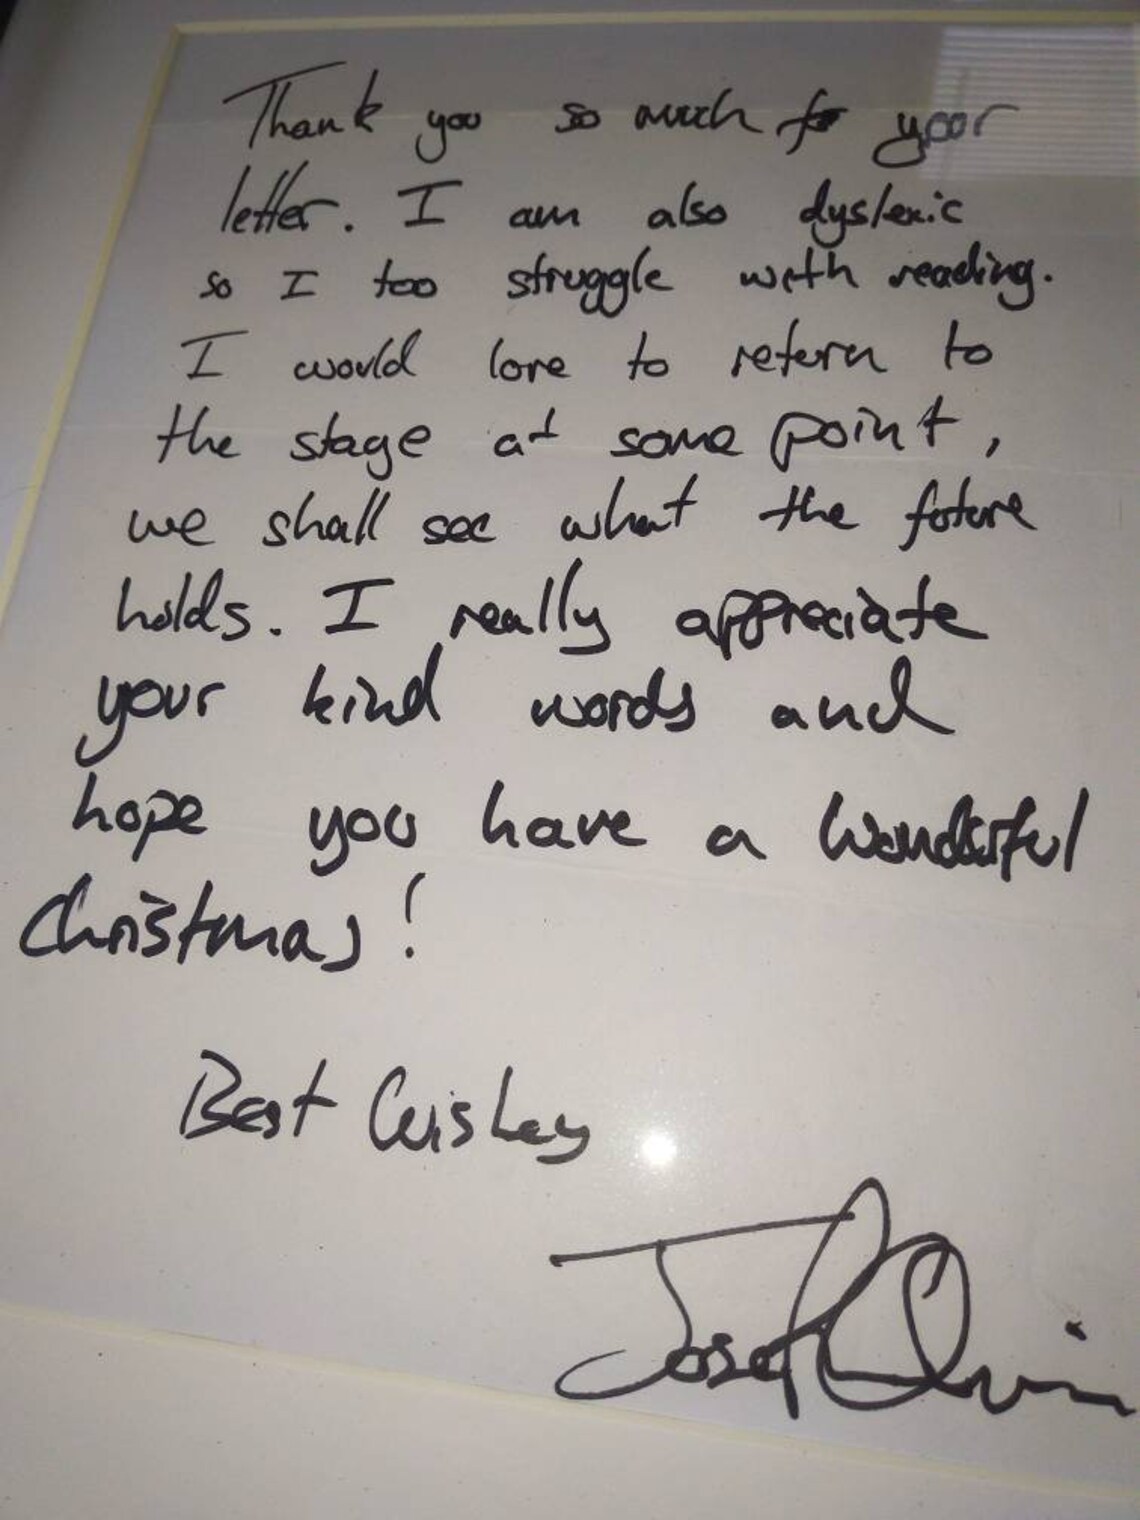 Thank you so much for your
letter. I am also dyslexic
so I too struggle with reading.
I would love to return to
the stage at some point,
we shall see what the future
holds. I really appreciate
your kind words and
hope you have a wonderful
Christmas!
Best Wishes
Joseph Quinn